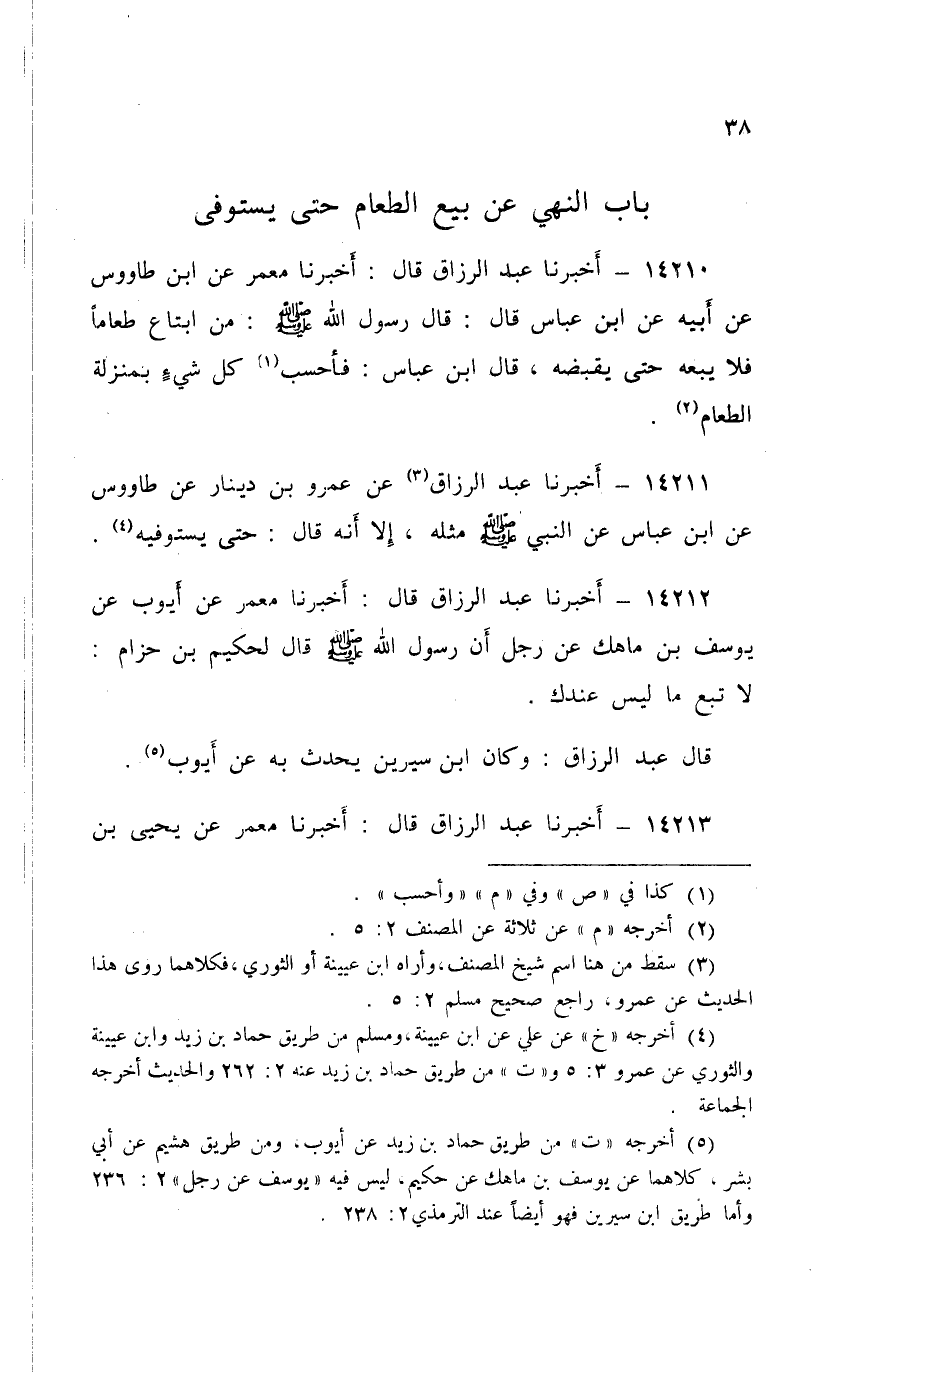 ٣٨
باب النهي عن بيع الطعام حتى يستوفى
١٤٢١٠ – أَخبرنا عبد الرزاق قال : أَخبرنا معمر عن ابن طاووس
عن أَبيه عن ابن عباس قال : قال رسول الله ﷺ : من ابتاع طعاماً
فلا يبعه حتى يقبضه ، قال ابن عباس : فأحسب(١) كل شيءٍ بمنزلة
الطعام(٢) .
١٤٢١١ – أَخبرنا عبد الرزاق(٣) عن عمرو بن دينار عن طاووس
عن ابن عباس عن النبي ﷺ مثله ، إِلا أَنه قال : حتى يستوفيه(٤) .
١٤٢١٢ – أَخبرنا عبد الرزاق قال : أَخبرنا معمر عن أَيوب عن
يوسف بن ماهك عن رجل أَن رسول الله ﷺ قال لحكيم بن حزام :
لا تبع ما ليس عندك .
قال عبد الرزاق : وكان ابن سيرين يحدث به عن أَيوب(٥) .
١٤٢١٣ – أَخبرنا عبد الرزاق قال : أَخبرنا معمر عن يحيى بن
(١) كذا في « ص » وفي « م » « وأحسب » .
(٢) أخرجه « م » عن ثلاثة عن المصنف ٢ : ٥ .
(٣) سقط من هنا اسم شيخ المصنف،وأراه ابن عيينة أو الثوري ،فكلاهما روى هذا
الحديث عن عمرو، راجع صحيح مسلم ٢ : ٥ .
(٤) أخرجه « خ » عن علي عن ابن عيينة،ومسلم من طريق حماد بن زيد وابن عيينة
والثوري عن عمرو ٣ : ٥ و« ت » من طريق حماد بن زيد عنه ٢ : ٢٦٢ والحديث أخرجه
الجماعة .
(٥) أخرجه « ت » من طريق حماد بن زيد عن أيوب، ومن طريق هشيم عن أبي
بشر ، كلاهما عن يوسف بن ماهك عن حكيم، ليس فيه « يوسف عن رجل » ٢ : ٢٣٦
وأما طريق ابن سيرين فهو أيضاً عند الترمذي ٢ : ٢٣٨ .